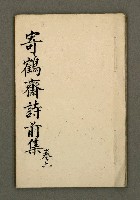 寄鶴齋詩前集
卷上